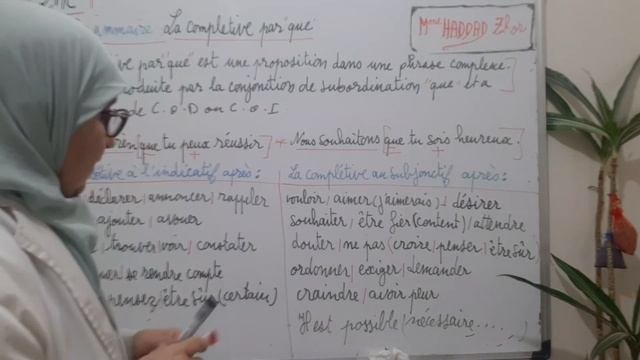 Grammaire La complétive par "que"
Mme HADDAD Zhor
ive par "que" est une proposition dans une phrase complexe.
roduite par la conjonction de subordination "que" et a
de C.O.D ou C.O.I
que tu peux réussir] + Nous souhaitons [que tu sois heureux.]
à l'indicatif après:
déclarer / annoncer / rappeler
ajouter / avouer
trouver / voir / constater
se rendre compte
pensez / être sûr (certain)
La complétive au subjonctif après:
vouloir / aimer (j'aimerais) / désirer
souhaiter / être fier (content) / attendre
douter / ne pas (croire / penser / être sûr
ordonner / exiger / demander
craindre / avoir peur
Il est possible / nécessaire.....)